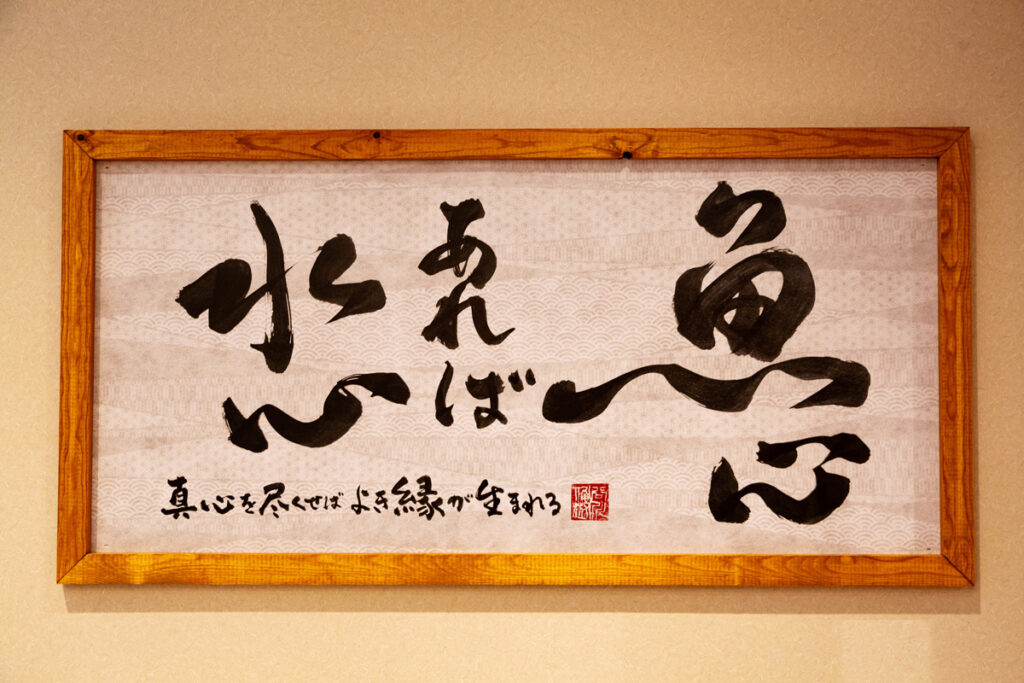 魚心
あれば
水心
真心を尽くせば よき縁が生まれる